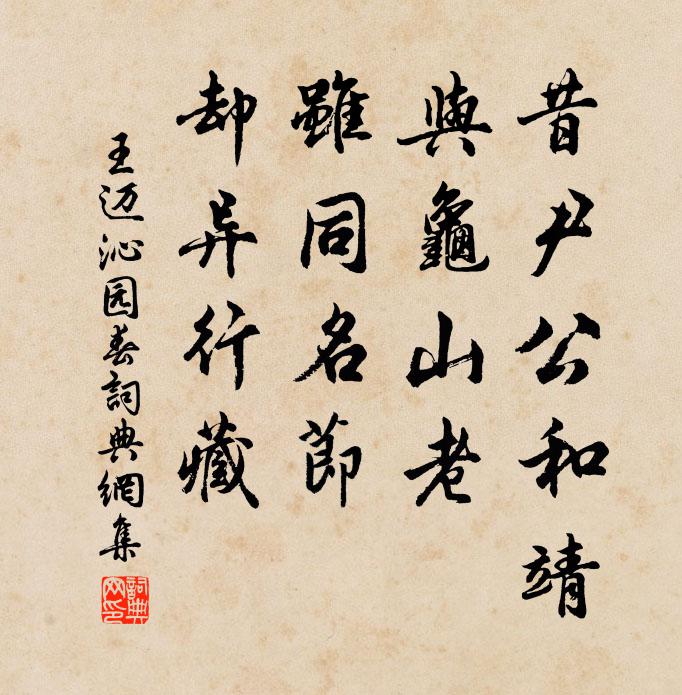 昔尹公和靖
與龜山老
雖同名節
却异行藏
王迈沁园春詞典網集
詞典網印